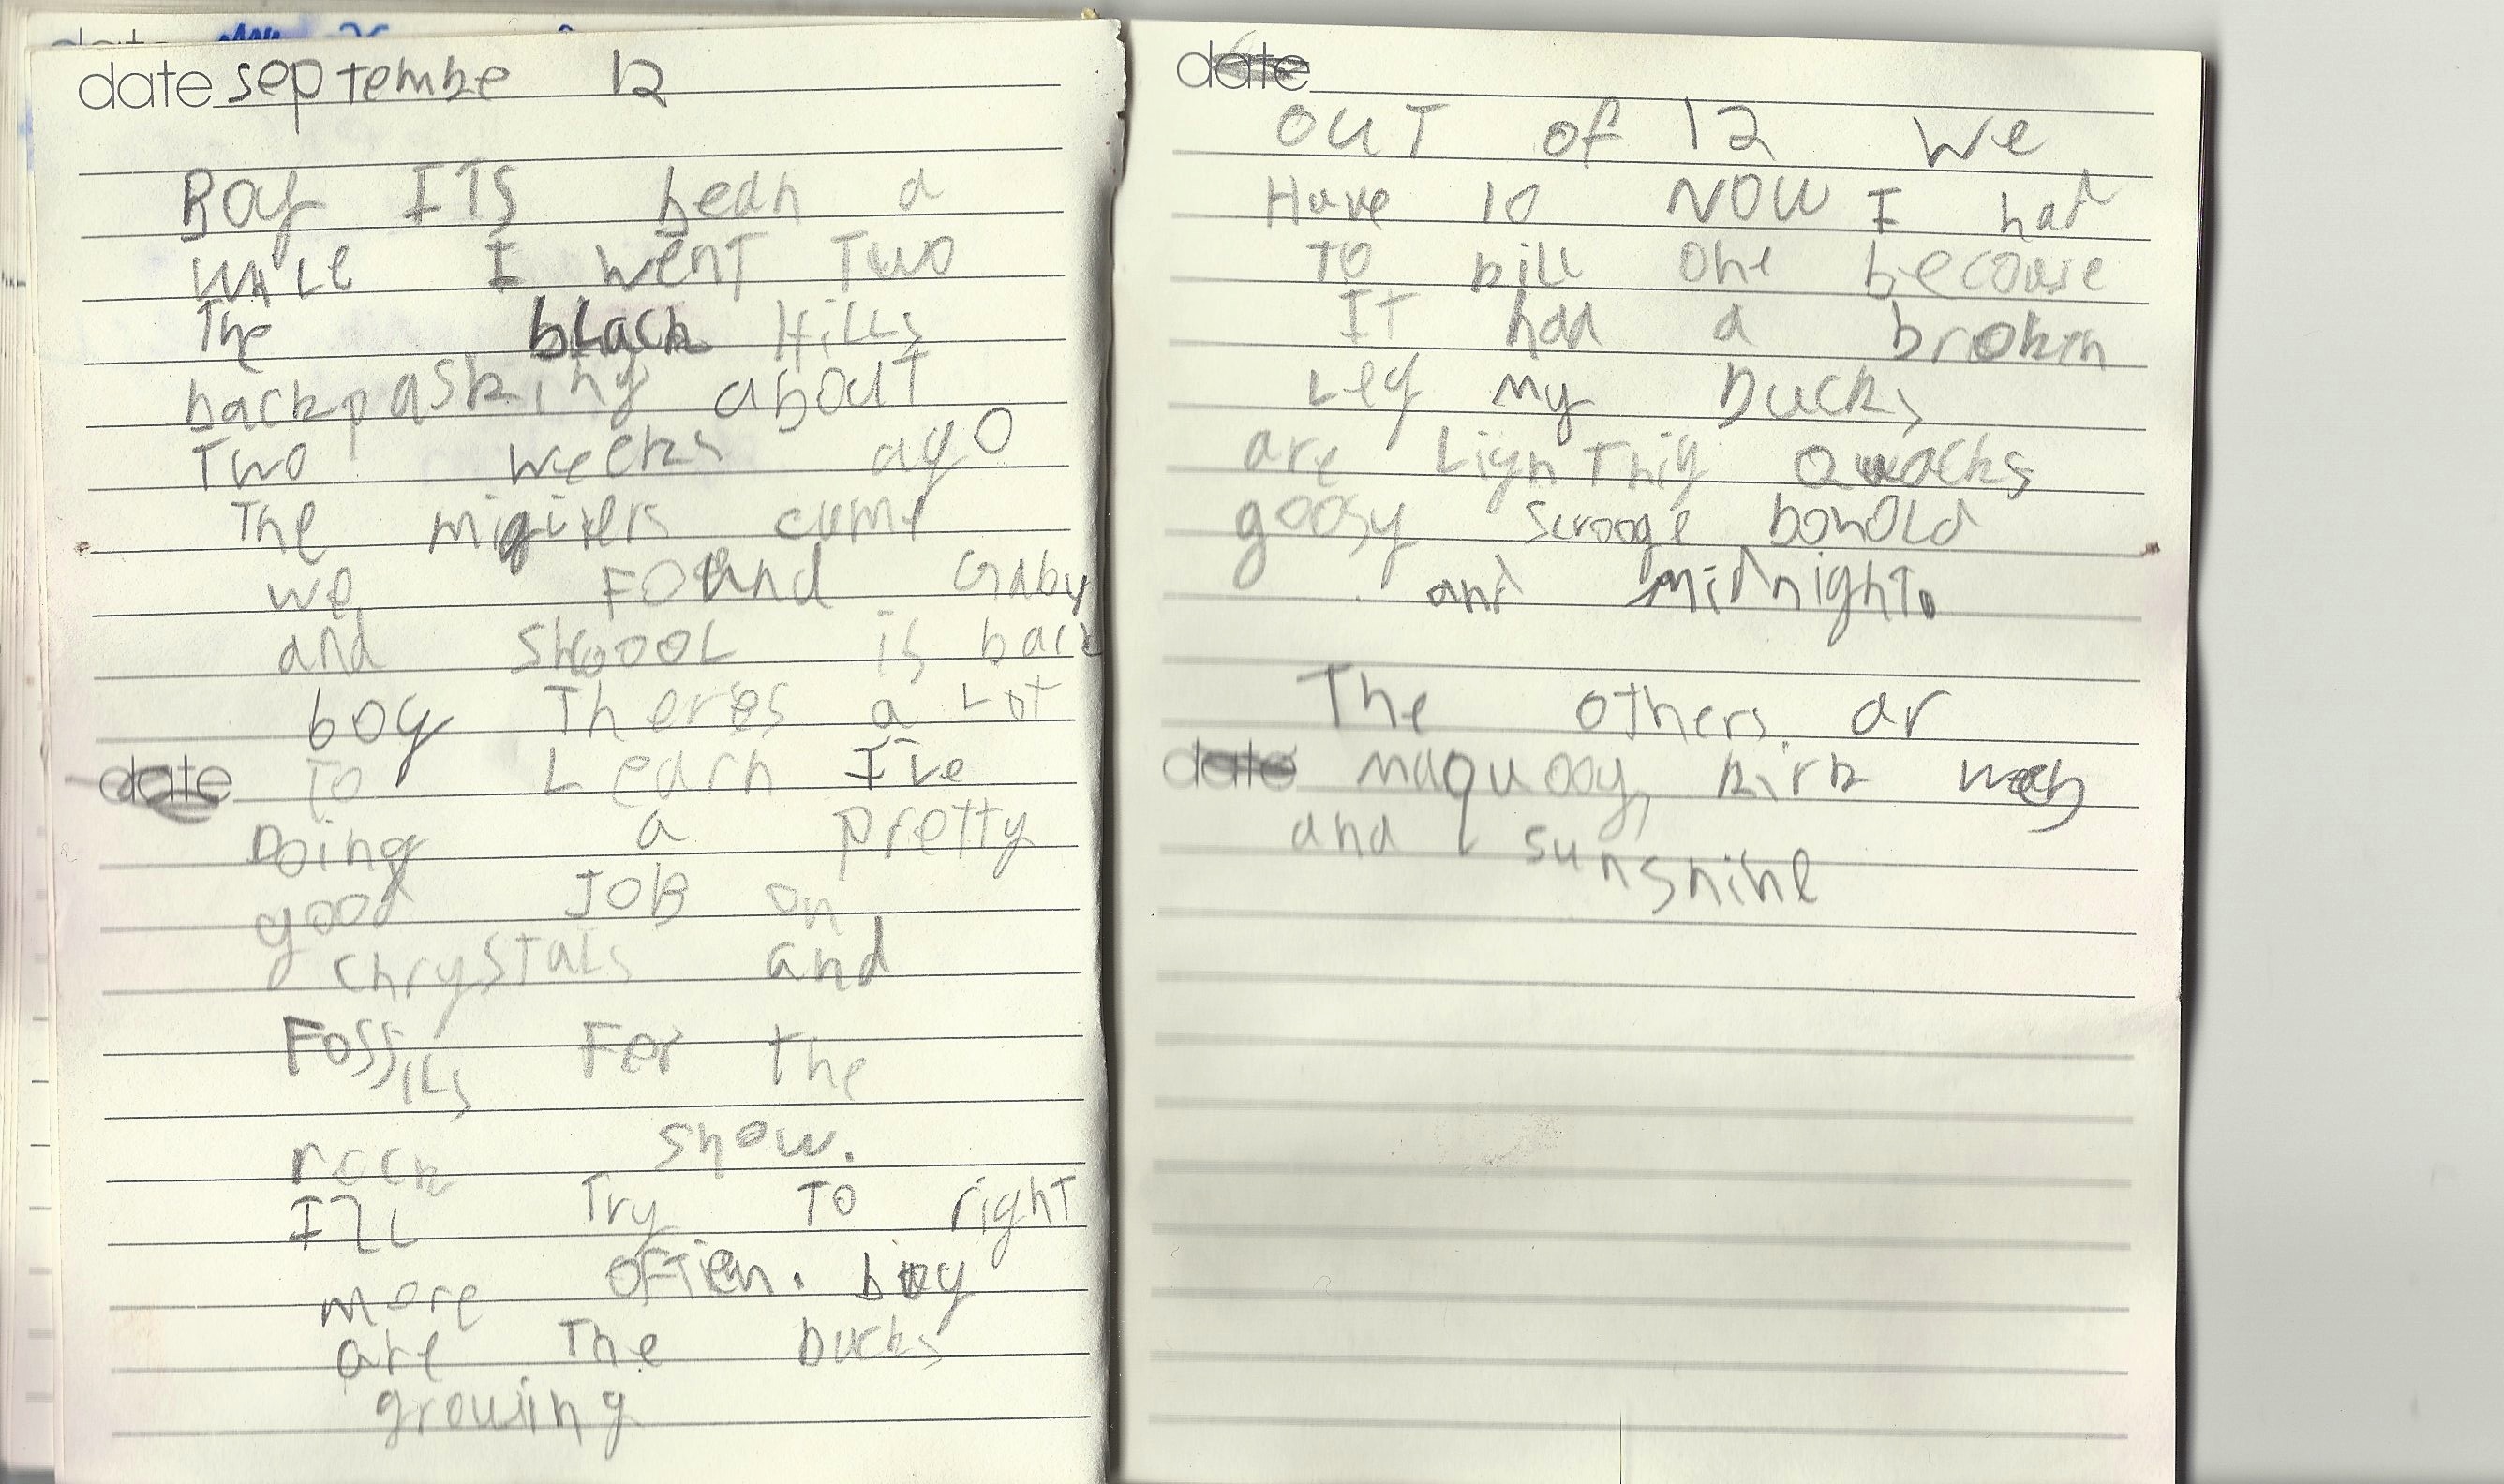 date septembe 12
Boy ITS bean a
wHile I went Two
The black Hills
backpasking about
Two weeks ago
The came
we Found Gaby
and skoool is back
boy Theres a Lot
date To Learn I've
Doing a pretty
good JOB on
chrystals and
Fossils For the
rock show.
I'll Try To right
more often. boy
are The Ducks
growing
date
OUT of 12 we
Have 10 NOW I had
To kill one becouse
IT had a broken
Leg My Ducks
are LignThig Quacks
goosy scrooge Donold
and Midnight.
The others ar
date maquooy, kirk
and sunshine